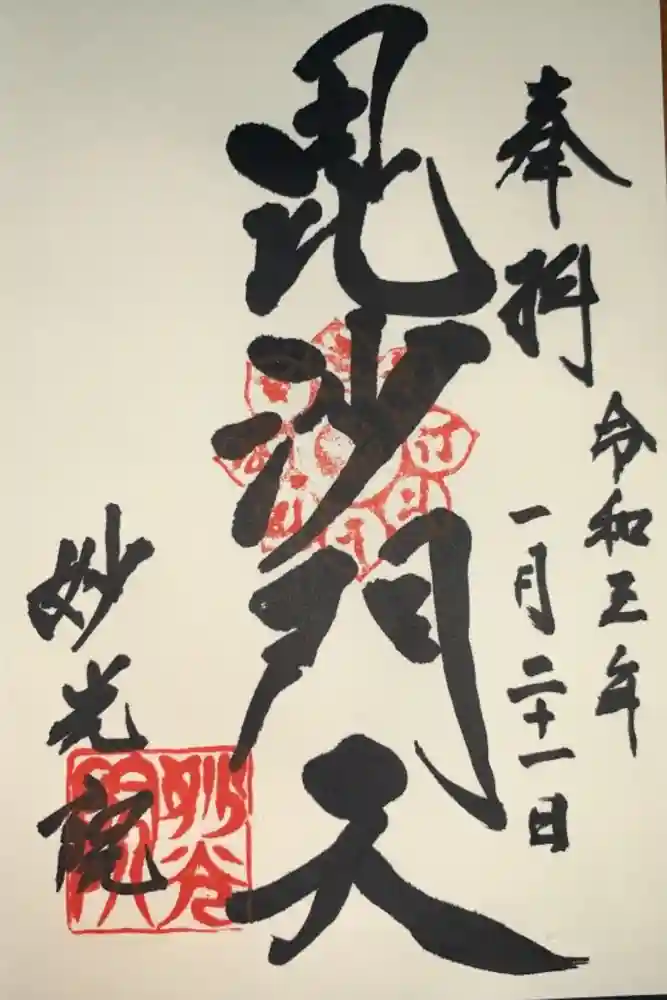 奉拝
令和三年
一月二十一日
毘沙門天
妙光院
妙光院